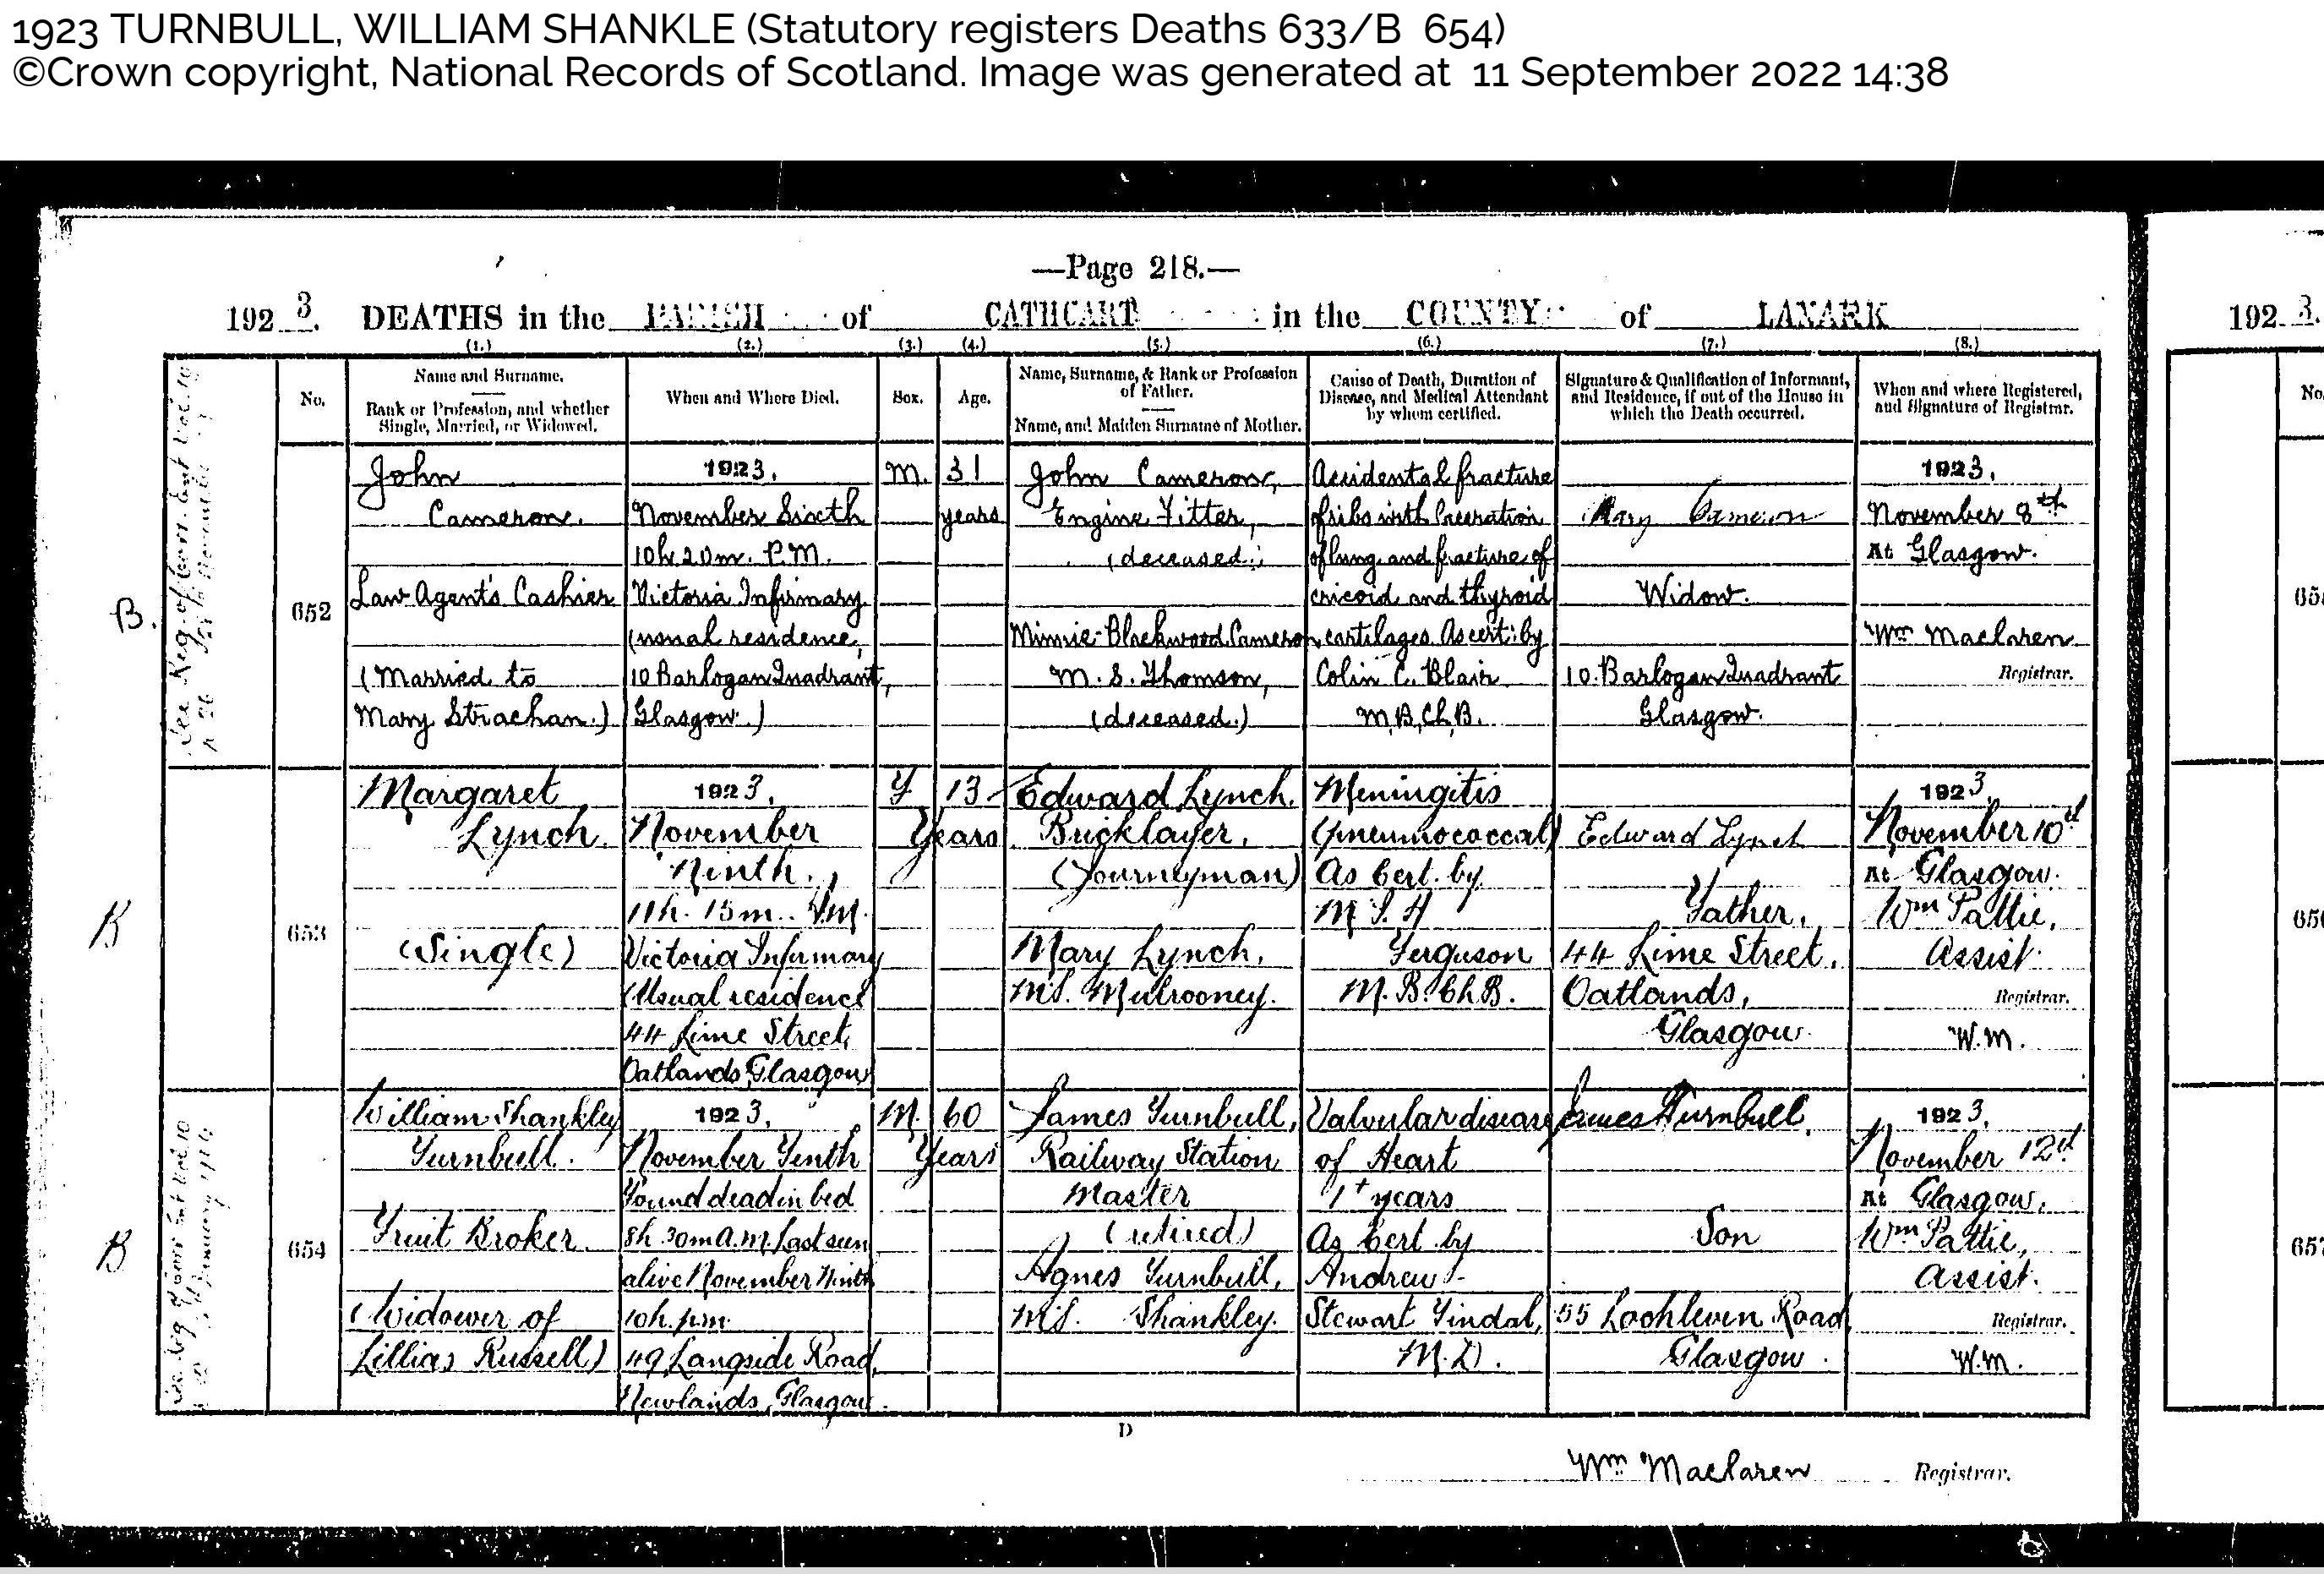 1923 TURNBULL, WILLIAM SHANKLE (Statutory registers Deaths 633/B 654)
©Crown copyright, National Records of Scotland. Image was generated at 11 September 2022 14:38
—Page 218.—
1923. DEATHS in the PARISH of CATHCART in the COUNTY of LANARK
192 3.
(1.) (2.) (3.) (4.) (5.) (6.) (7.) (8.)
No.
Name and Surname.
Rank or Profession, and whether
Single, Married, or Widowed.
When and Where Died.
Sex.
Age.
Name, Surname, & Rank or Profession
of Father.
Name, and Maiden Surname of Mother.
Cause of Death, Duration of
Disease, and Medical Attendant
by whom certified.
Signature & Qualification of Informant,
and Residence, if out of the House in
which the Death occurred.
When and where Registered,
and Signature of Registrar.
No.
B.
652
John
Cameron.
Law Agent's Cashier
(Married to
Mary Strachan.)
1923.
November Sixth
10h. 20m. P.M.
Victoria Infirmary
(usual residence,
10 Barlogan Quadrant,
Glasgow.)
M.
31
years
John Cameron,
Engine Fitter,
(deceased.)
Minnie Blackwood Cameron
M. S. Thomson,
(deceased.)
Accidental fracture
of ribs with laceration
of lung and fracture of
cricoid and thyroid
cartilages. As cert: by
Colin C. Blair
M.B, Ch, B.
Mary Cameron
Widow.
10. Barlogan Quadrant
Glasgow.
1923.
November 8th
At Glasgow.
Wm Maclaren
Registrar.
B
653
Margaret
Lynch.
(Single)
1923.
November
Ninth.
11h. 15m. P.M.
Victoria Infirmary
(Usual residence
44 Lime Street,
Oatlands, Glasgow)
F
13
Years
Edward Lynch.
Bricklayer,
(Journeyman)
Mary Lynch,
M.S. Mulrooney.
Meningitis
(pneumococcal)
As Cert. by
M. S. H
Ferguson
M. B. Ch.B.
Edward Lynch
Father,
44 Lime Street,
Oatlands,
Glasgow
1923.
November 10th
At Glasgow.
Wm Pattie,
Assist.
Registrar.
W.M.
B
654
William Shankley
Turnbull.
Fruit Broker.
(Widower of
Lillias Russell)
1923.
November Tenth
Found dead in bed
8h. 30m A.M. Last seen
alive November Ninth
10h. p.m.
49 Langside Road,
Newlands, Glasgow.
M.
60
Years
James Turnbull,
Railway Station
Master
(retired)
Agnes Turnbull,
M.S. Shankley.
Valvular disease
of Heart
1+ years
As Cert. by
Andrew
Stewart Tindal,
M.D.
James Turnbull.
Son
55 Lochleven Road,
Glasgow.
1923.
November 12th
At Glasgow.
Wm Pattie,
Assist.
Registrar.
W.M.
D
Wm Maclaren Registrar.